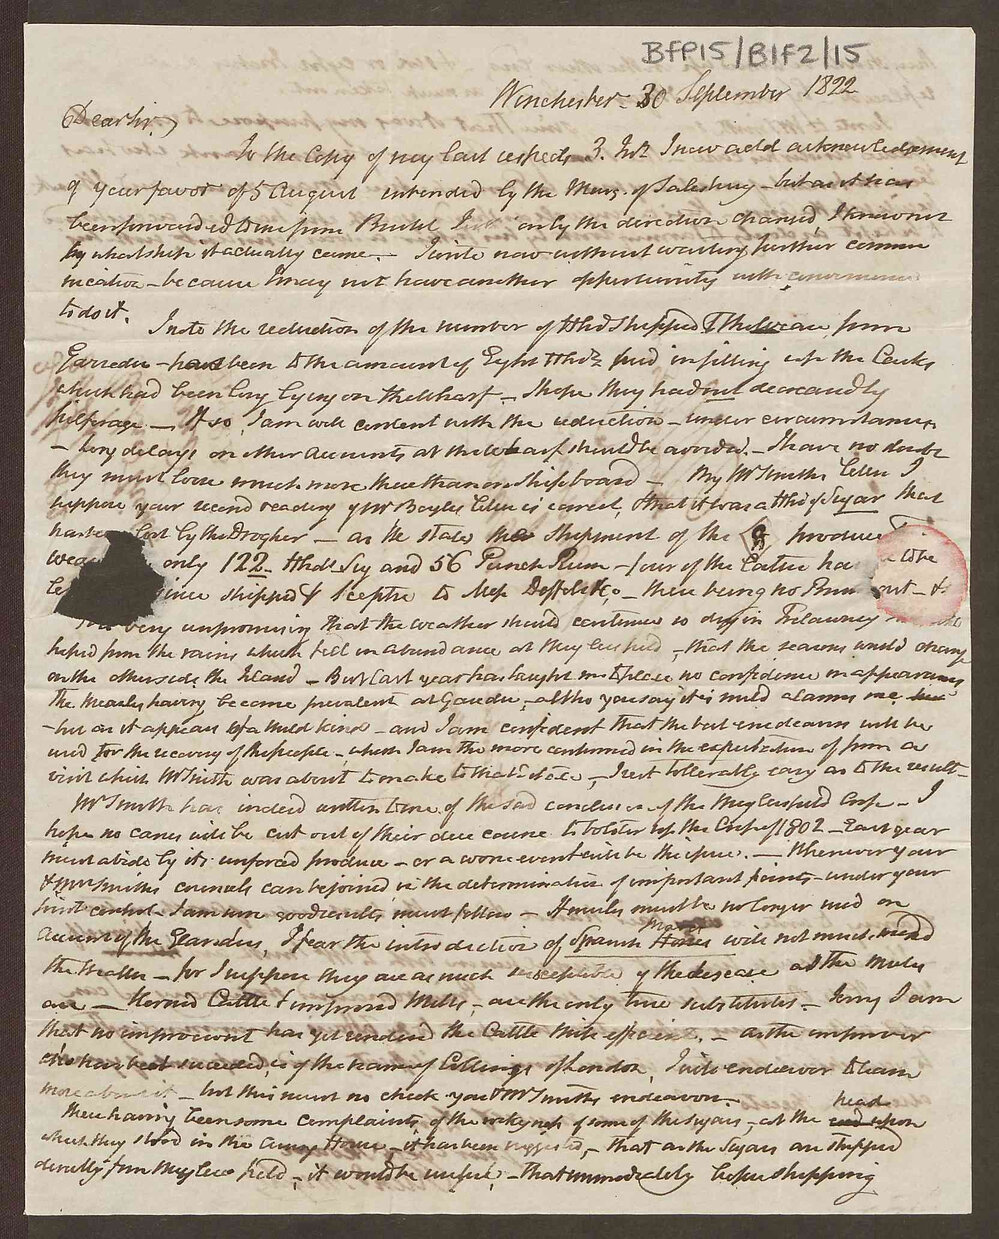 BFP15/B1F2/15
Winchester 30 September 1822
Dear Sir,
To the Copy of my last respects 3. Inst. I now add acknowledgement
of your favor of 5 August intended by the Marq. of Salesbury - but as it has
been forwarded to me from Bristol only the direction changed, I know not
by what ship it actually came. - I write now without waiting further commu
nication - because I may not have another opportunity with convenience
to do it.
I note the reduction of the number of Hhds shipped from
been to the amount of Eight Hhds used in filling up the Casks
which had been long lying on the Wharf. - I hope they had not decreased by
pilferage. - If so, I am well content with the reduction - under circumstances
- long delays on other accounts at the wharf should be avoided. - I have no doubt
they must lose much more there than on shipboard - By Mr Smiths Letter I
suppose your second reading of Mr Boyles Letter is correct, that it was a Hhd of Sugar that
has been lost by the Drogher - as he states the shipment of the produce
was only 122 Hhds Sug and 56 Punch Rum - four of the Latter to be
since shipped Sceptre to Mess - there being no
very unpromising that the weather should continue so dry in Trelawney
hoped from the rains which fell in abundance at Mesylesfield - that the seasons would change
on the other side the Island - But last year has taught me to place no confidence in appearances
The Measles having become prevalent at altho you say it is mild alarms me
- but as it appears of a mild kind - and I am confident that the best endeavours will be
used for the recovery of the people - which I am the more confirmed in the expectation of from a
visit which Mr Smith was about to make to that Estate - I rest tollerably easy as to the result -
Mr Smith has indeed written to me of the sad conclusion of the Crop - I
hope no canes will be cut out of their due course to bolster up the Crop of 1802 - Each year
must abide by its unforced produce - or a worse event will be the issue. - Whenever your
& Mr Smiths counsels can be joined in the determination of important points - under your
joint control I am sure good results must follow - Mules must be no longer used on
account of the Glanders, I fear the introduction of Spanish Mares will not much mend
the matter - for I suppose they are as much susceptible of the disease as the Mules
are. - Horned Cattle & improved Mills, - are the only true substitutes - Sorry I am
that no improvement has yet rendered the Cattle Mill efficient. - as the improver
who has best succeeded, is of the name of Collinge of London, I will endeavour to learn
more about it - but this must no check you & Mr Smiths endeavours -
There having been some complaints of the of some of the sugars - at the head upon
which they stood in the Curing House, - it has been suggested, - that as the Sugars are shipped
directly from field, - it would be useful - that immediately before shipping